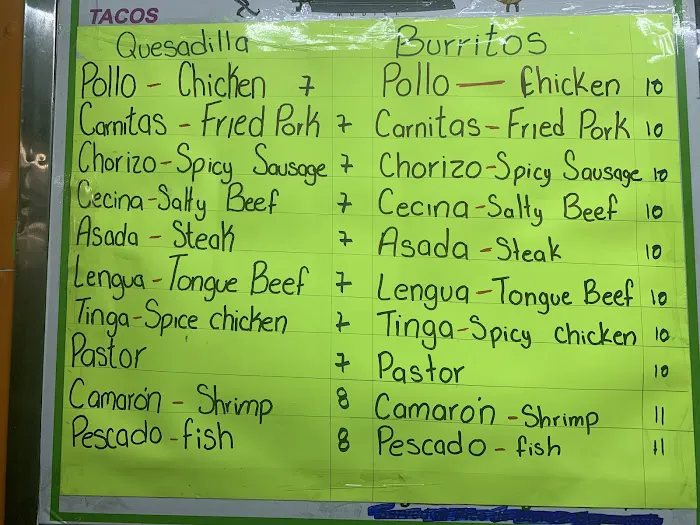 TACOS
Quesadilla
Pollo - Chicken 7
Carnitas - Fried Pork 7
Chorizo-Spicy Sausage 7
Cecina-Salty Beef 7
Asada - Steak 7
Lengua-Tongue Beef 7
Tinga-Spice chicken 7
Pastor 7
Camarón - Shrimp 8
Pescado-fish 8
Burritos
Pollo — Chicken 10
Carnitas-Fried Pork 10
Chorizo-Spicy Sausage 10
Cecina-Salty Beef 10
Asada-Steak 10
Lengua-Tongue Beef 10
Tinga-Spicy chicken 10
Pastor 10
Camarón-Shrimp 11
Pescado-fish 11